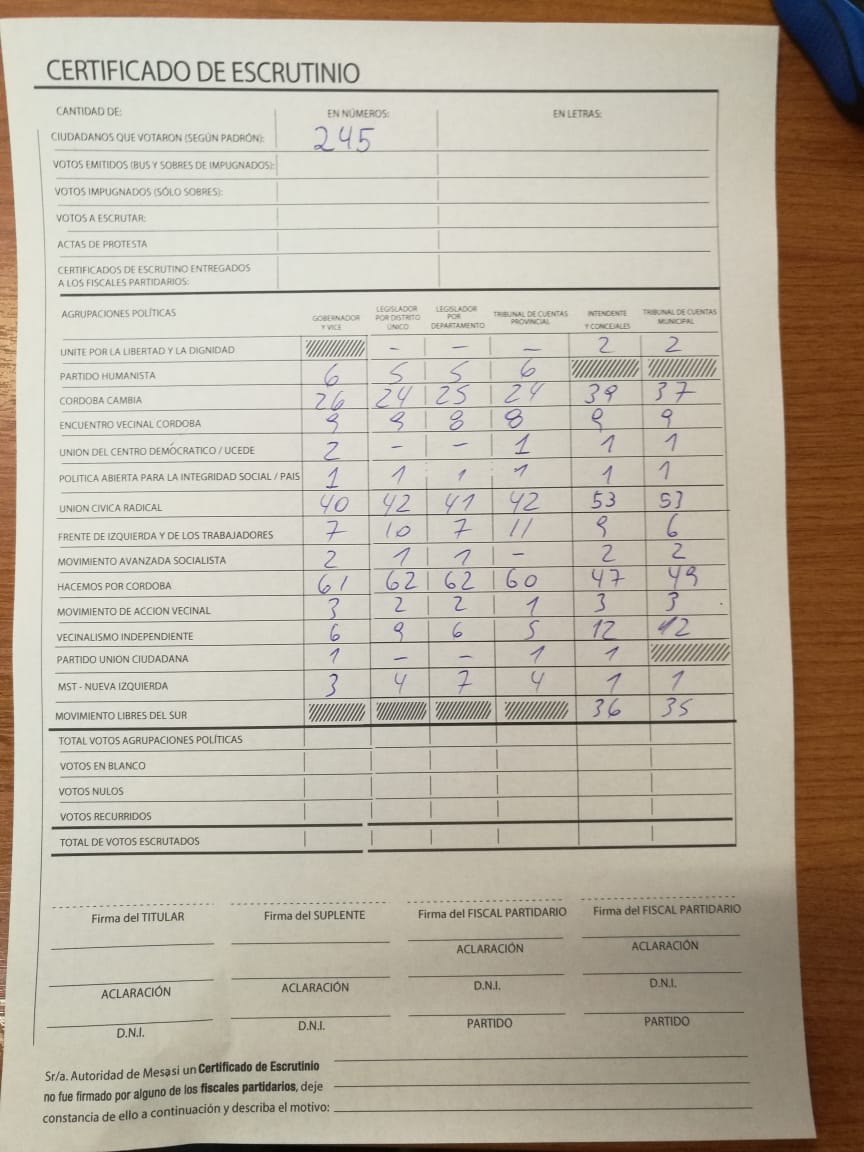 CERTIFICADO DE ESCRUTINIO
CANTIDAD DE: EN NÚMEROS: EN LETRAS:
CIUDADANOS QUE VOTARON (SEGÚN PADRÓN): 245
VOTOS EMITIDOS (BUS Y SOBRES DE IMPUGNADOS):
VOTOS IMPUGNADOS (SÓLO SOBRES):
VOTOS A ESCRUTAR:
ACTAS DE PROTESTA
CERTIFICADOS DE ESCRUTINO ENTREGADOS
A LOS FISCALES PARTIDARIOS:
AGRUPACIONES POLÍTICAS GOBERNADOR Y VICE LEGISLADOR POR DISTRITO ÚNICO LEGISLADOR POR DEPARTAMENTO TRIBUNAL DE CUENTAS PROVINCIAL INTENDENTE Y CONCEJALES TRIBUNAL DE CUENTAS MUNICIPAL
UNITE POR LA LIBERTAD Y LA DIGNIDAD - - - 2 2
PARTIDO HUMANISTA 6 5 5 6
CORDOBA CAMBIA 26 24 25 24 39 37
ENCUENTRO VECINAL CORDOBA 9 9 8 8 9 9
UNION DEL CENTRO DEMÓCRATICO / UCEDE 2 - - 1 1 1
POLITICA ABIERTA PARA LA INTEGRIDAD SOCIAL / PAIS 1 1 1 1 1 1
UNION CIVICA RADICAL 40 42 41 42 53 53
FRENTE DE IZQUIERDA Y DE LOS TRABAJADORES 7 10 7 11 9 6
MOVIMIENTO AVANZADA SOCIALISTA 2 1 1 - 2 2
HACEMOS POR CORDOBA 61 62 62 60 47 49
MOVIMIENTO DE ACCION VECINAL 3 2 2 1 3 3
VECINALISMO INDEPENDIENTE 6 9 6 5 12 12
PARTIDO UNION CIUDADANA 1 - - 1 1
MST - NUEVA IZQUIERDA 3 4 7 4 1 1
MOVIMIENTO LIBRES DEL SUR 36 35
TOTAL VOTOS AGRUPACIONES POLÍTICAS
VOTOS EN BLANCO
VOTOS NULOS
VOTOS RECURRIDOS
TOTAL DE VOTOS ESCRUTADOS
Firma del TITULAR Firma del SUPLENTE Firma del FISCAL PARTIDARIO Firma del FISCAL PARTIDARIO
ACLARACIÓN ACLARACIÓN
ACLARACIÓN ACLARACIÓN D.N.I. D.N.I.
D.N.I. D.N.I. PARTIDO PARTIDO
Sr/a. Autoridad de Mesa si un Certificado de Escrutinio
no fue firmado por alguno de los fiscales partidarios, deje
constancia de ello a continuación y describa el motivo: